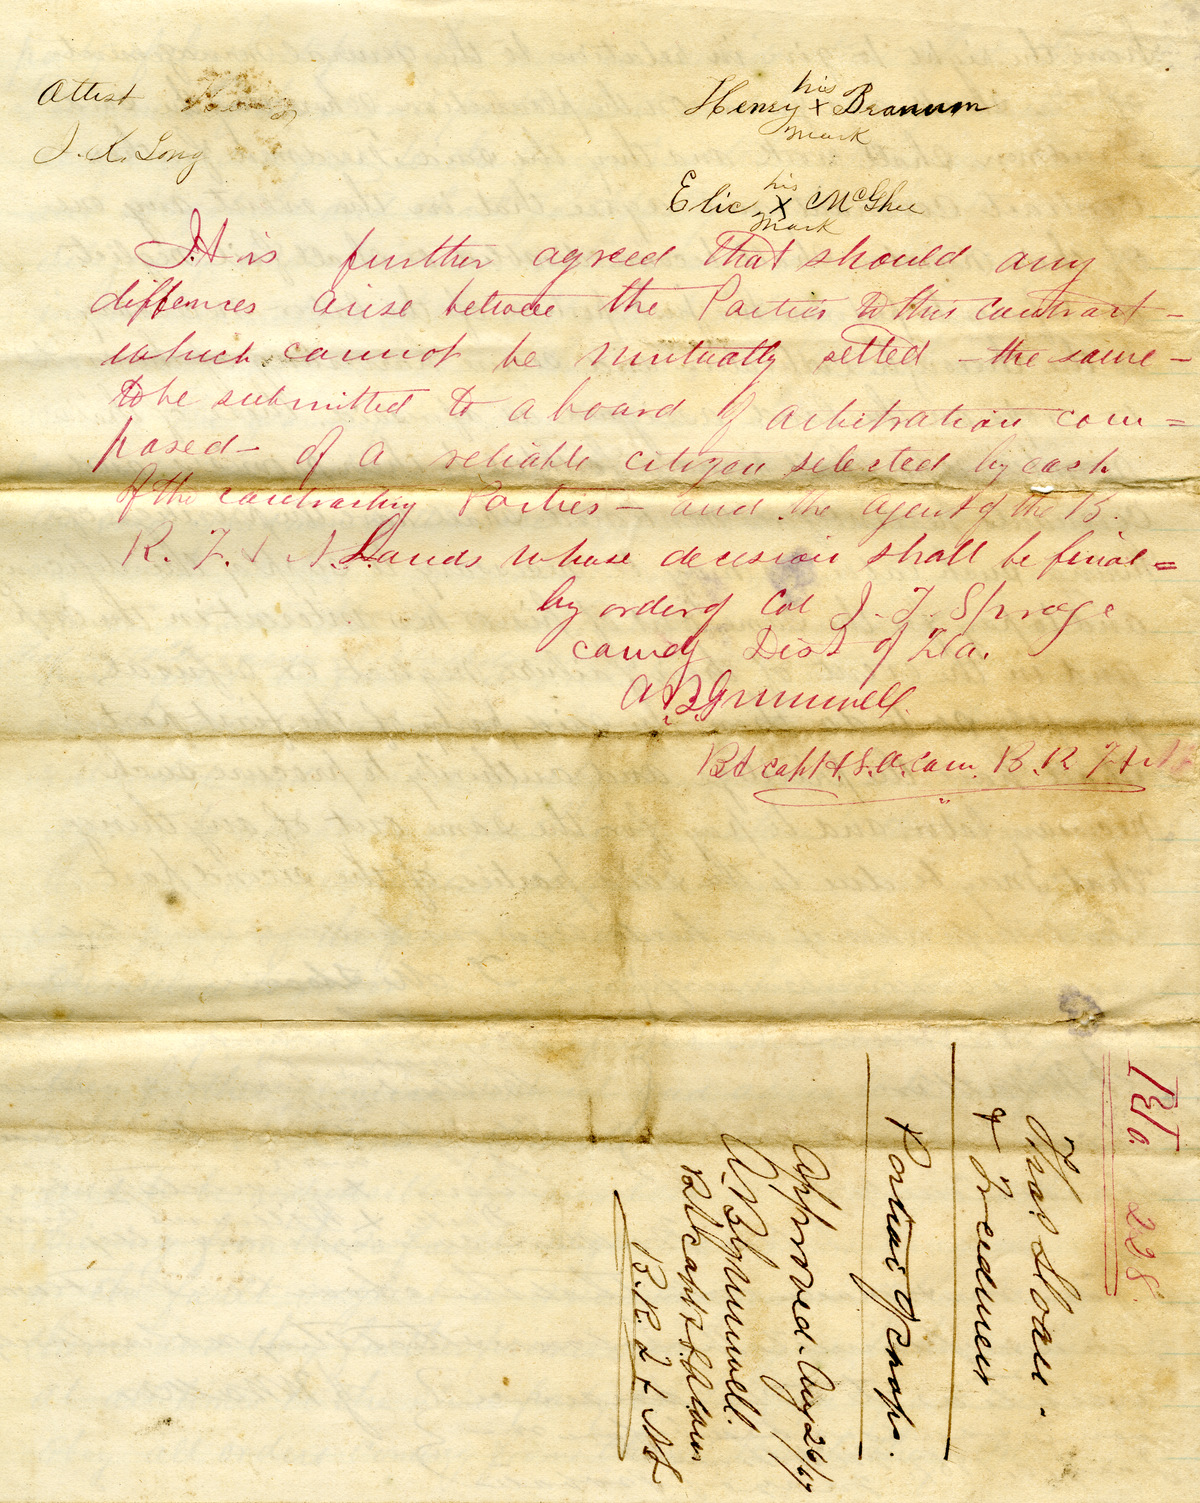 Attest
J. K. Long
his
Henry X Brannum
mark
his
Elic X McGhee
mark
It is further agreed that should any
differnces arise betwee the Parties to this contract –
which cannot be mutually setted – the same –
to be submitted to a board of arbitration com=
posed – of a reliable citizen selected by each
of the contracting Parties – and the agent of the B.
R. F. & A. Lands whose decision shall be final =
by order of Col J. T. Sprage
comdg Dist of Fla.
A. B. Grumwell
Bt capt U.S.A. com. B. R. F &
Bto. 228.
Thos. Sloan.
& Freedmen
Portion of crops.
Approved. Aug 26/67
A. B. Grumwell.
Bt capt U.S.A. com
B. R. F & AL